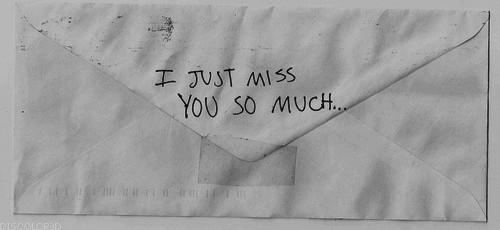 I JUST MISS
YOU SO MUCH...